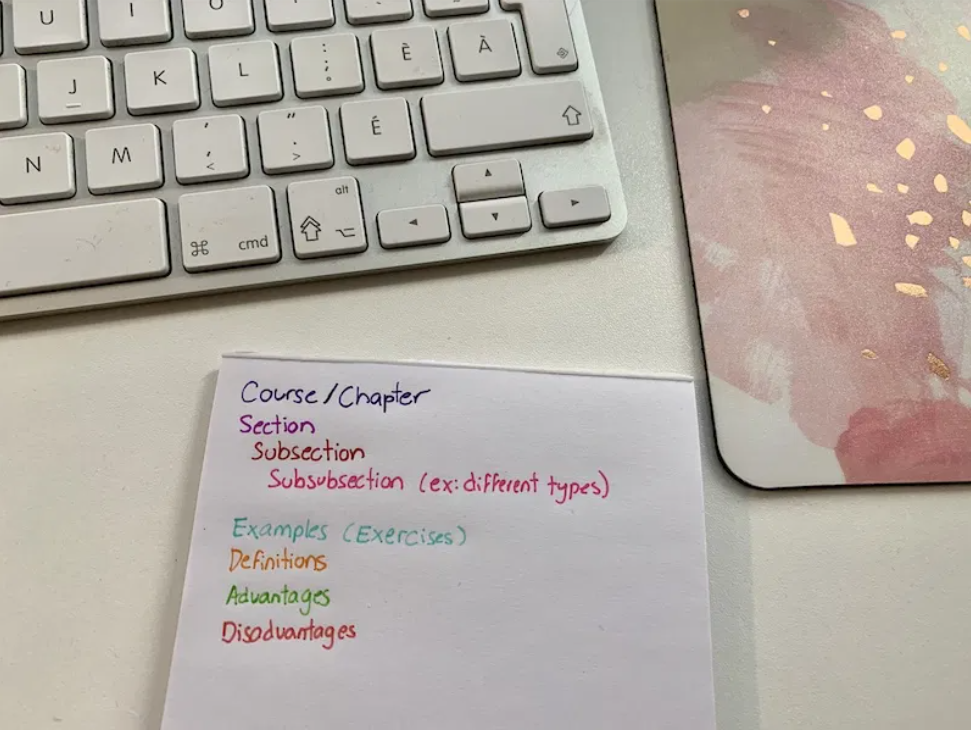 U I O
J K L : ; È À
N M ' , < " . > É
alt
⌘ cmd
Course/Chapter
Section
Subsection
Subsubsection (ex: different types)
Examples (Exercises)
Definitions
Advantages
Disadvantages